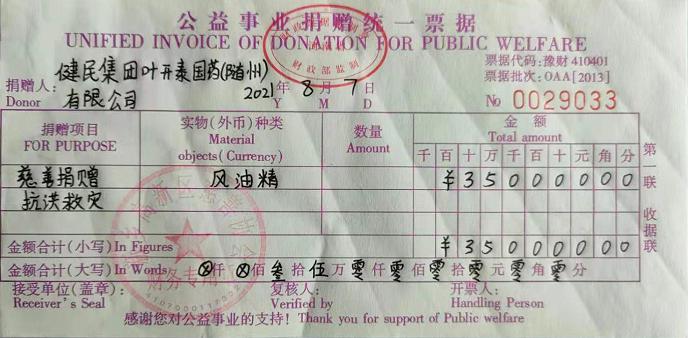 公益事业捐赠统一票据
UNIFIED INVOICE OF DONATION FOR PUBLIC WELFARE
财政部监制
票据代码:豫财 410401
票据批次:OAA[2013]
No 0029033
捐赠人: 健民集团叶开泰国药(随州)
Donor 有限公司
2021年 8月 7日
Y M D
捐赠项目 实物(外币)种类 数量 金额
FOR PURPOSE Material objects(Currency) Amount Total amount
千 百 十 万 千 百 十 元 角 分
慈善捐赠 风油精 ¥ 3 5 0 0 0 0 0 0
抗洪救灾
金额合计(小写)In Figures ¥ 3 5 0 0 0 0 0 0
金额合计(大写)In Words ⊗仟 ⊗佰 叁拾 伍万 零仟 零佰 零拾 零元 零角 零分
第一联 收据联
接受单位(盖章): 复核人: 开票人:
Receiver's Seal Verified by Handling Person
财务专用章
感谢您对公益事业的支持! Thank you for support of Public welfare